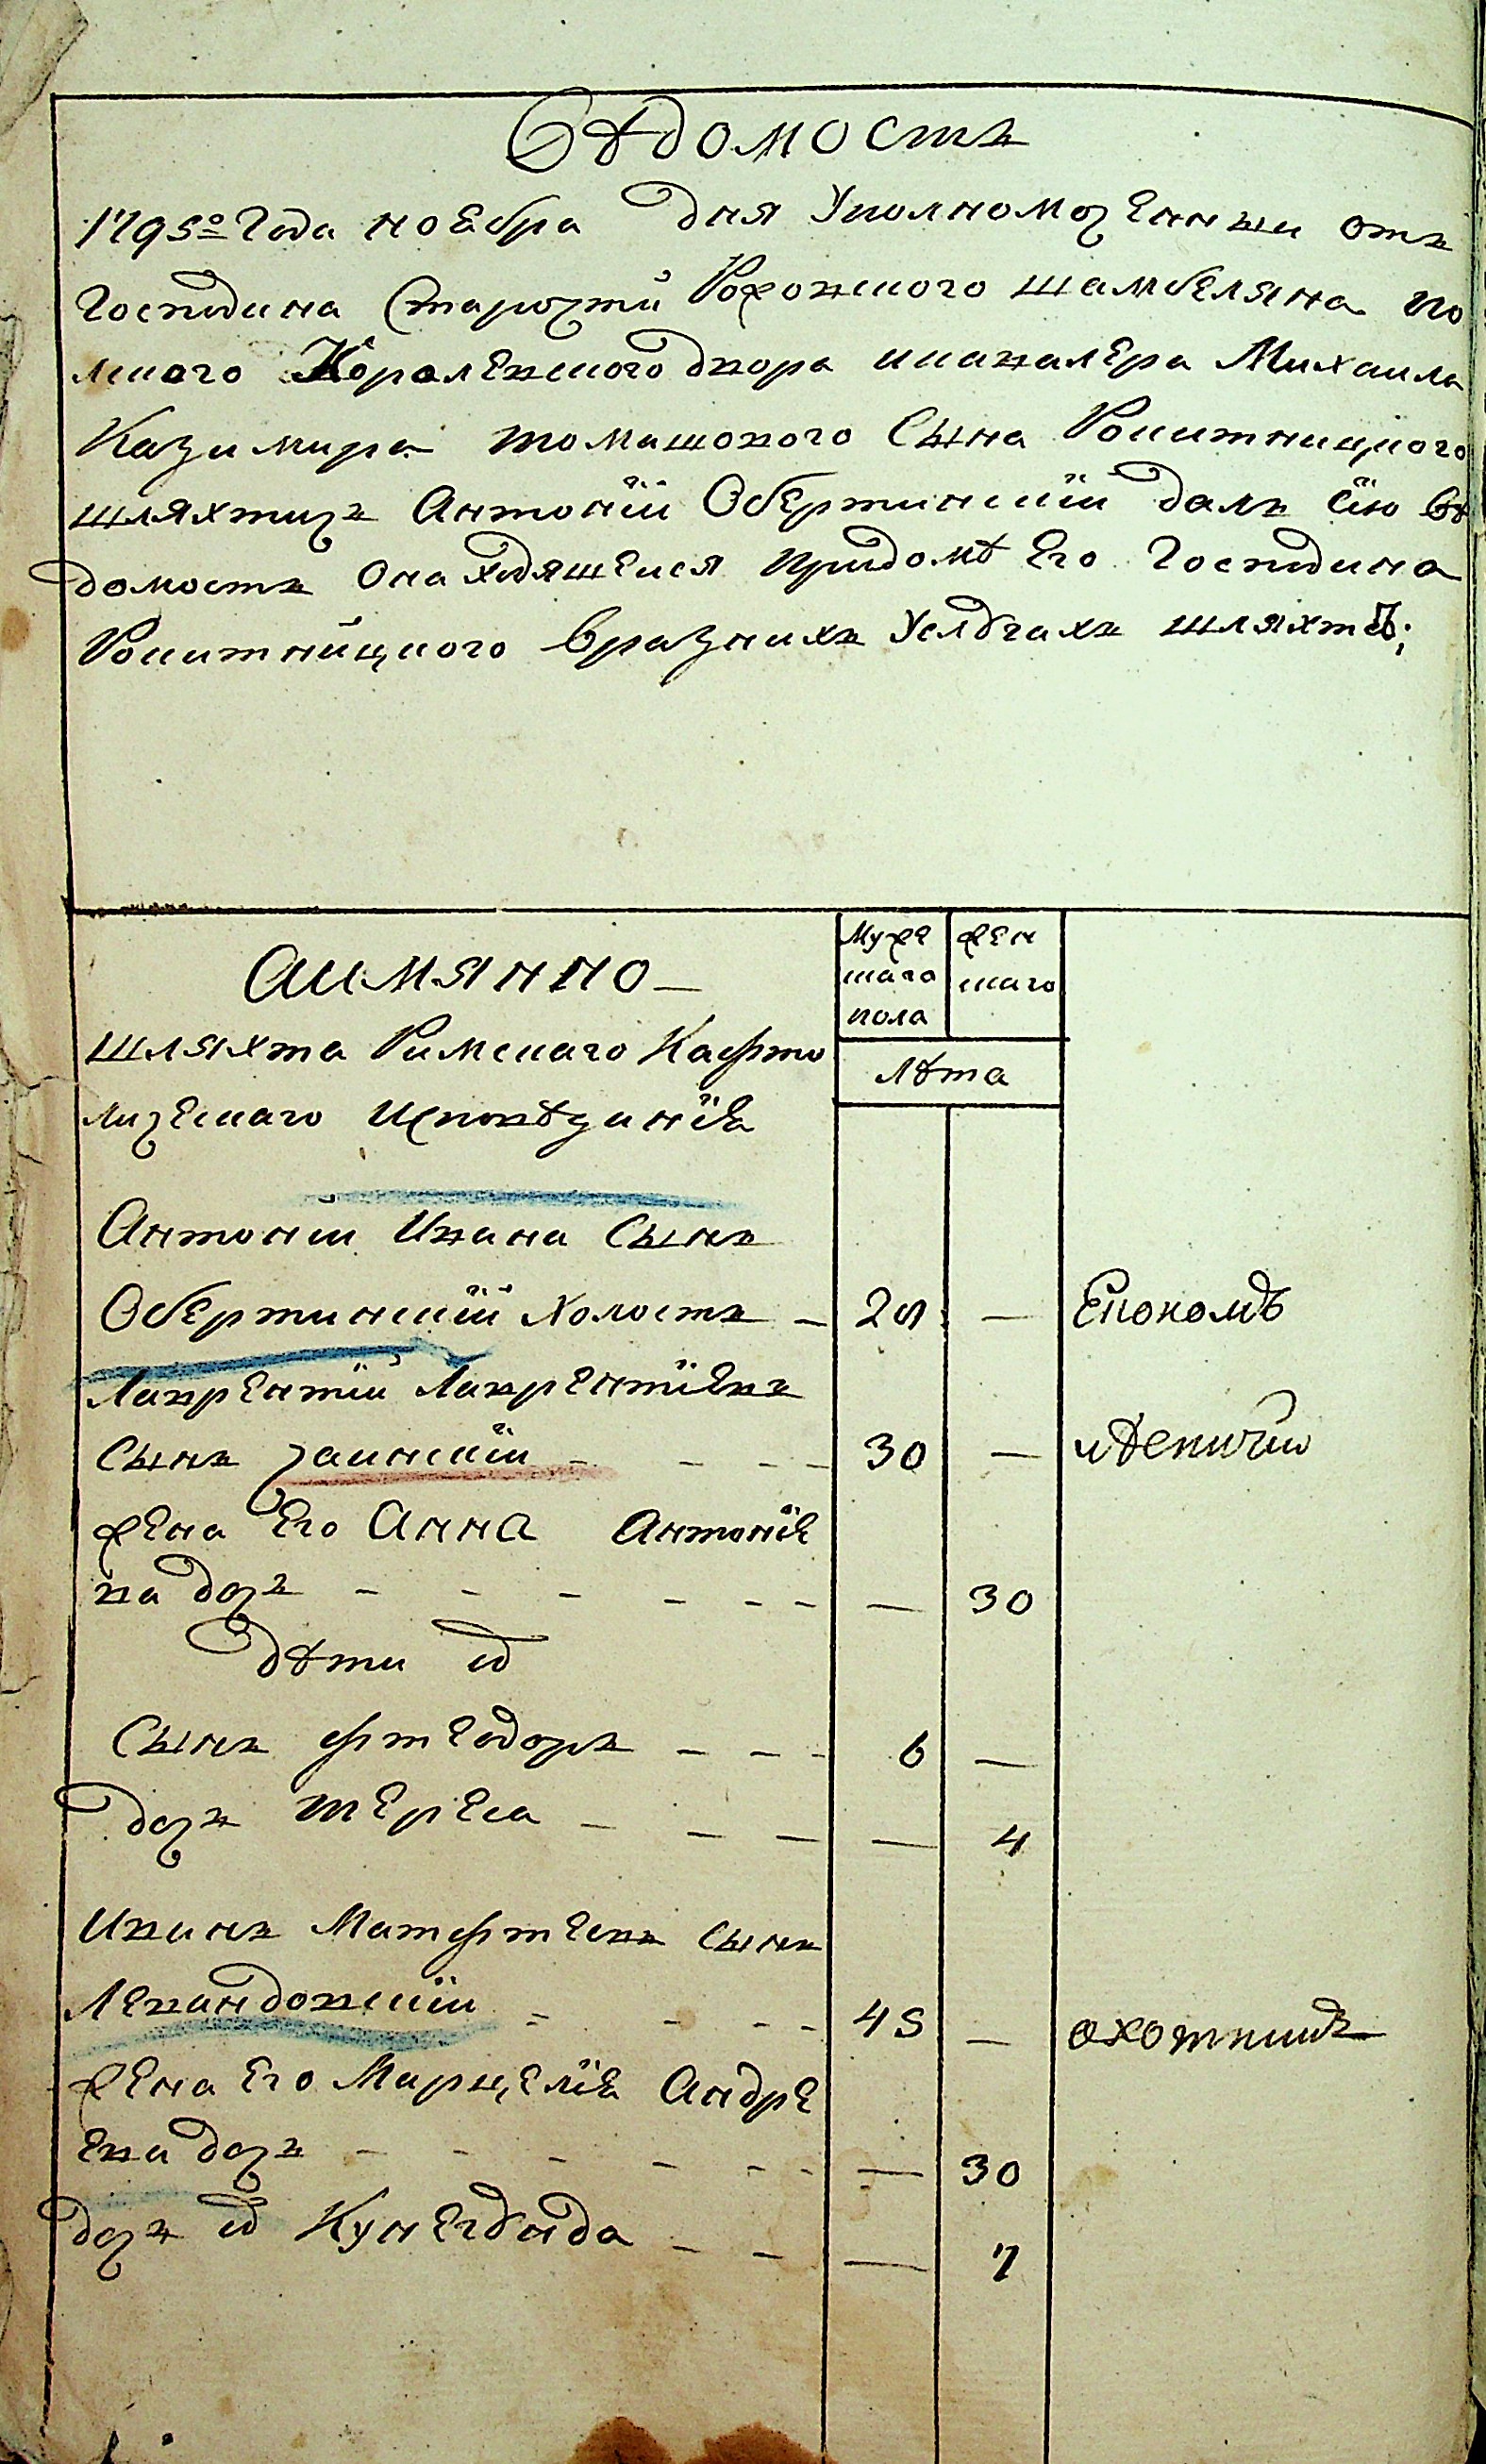 Вѣдомость
1795º года ноебра дня Уполномоченныи отъ
Господина Старосты Рожовского шамбеляна по
лского Королевского двора икавалера Михаила
Казимира томашового Сына Рокитницкого
шляхтичъ Антоній Обертинскій далъ сїю вѣ
домость Онаходящейся придомѣ Его Господина
Рокитницкого вразнихъ Услугахъ шляхтѣ;
Аимянно —
Муже
скаго
пола
жен
скаго
лѣта
шляхта Римскаго Кафто
лическаго Исповѣдиния
Антоній Ивана Сынъ
Обертинскій Холостъ — —
Економъ
Лаврентій Лаврентїевъ
Сынъ заинскій - - - - 30 —
жена Его Анна Антоніе
ва дочь - - - - - - — 30
дѣти ихъ
Сынъ фтеодоръ - - - 6 —
дочь Тереса - - - — 4
Иванъ Матфтеевъ Сынъ
Левандовскїй - - - - 45 — охотникъ
жена Его Марцелїа Андре
ева дочь - - - - - - — 30
дочь ихъ Кунегунда - - — 7